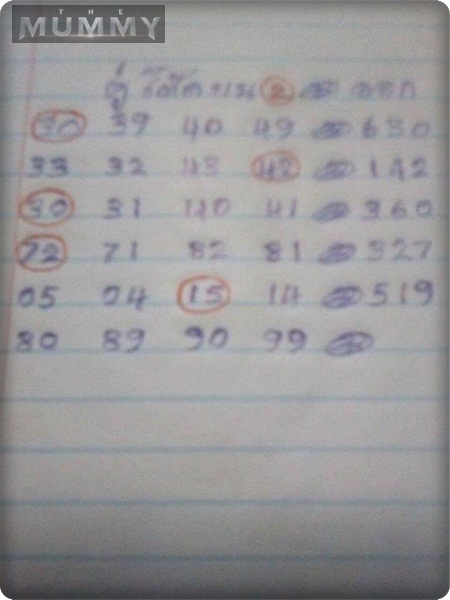 THE
MUMMY
คู่โต๊ดบน 2 ออก
30 39 40 49 630
33 32 43 42 142
30 31 40 41 360
72 71 82 81 327
05 04 15 14 519
80 89 90 99